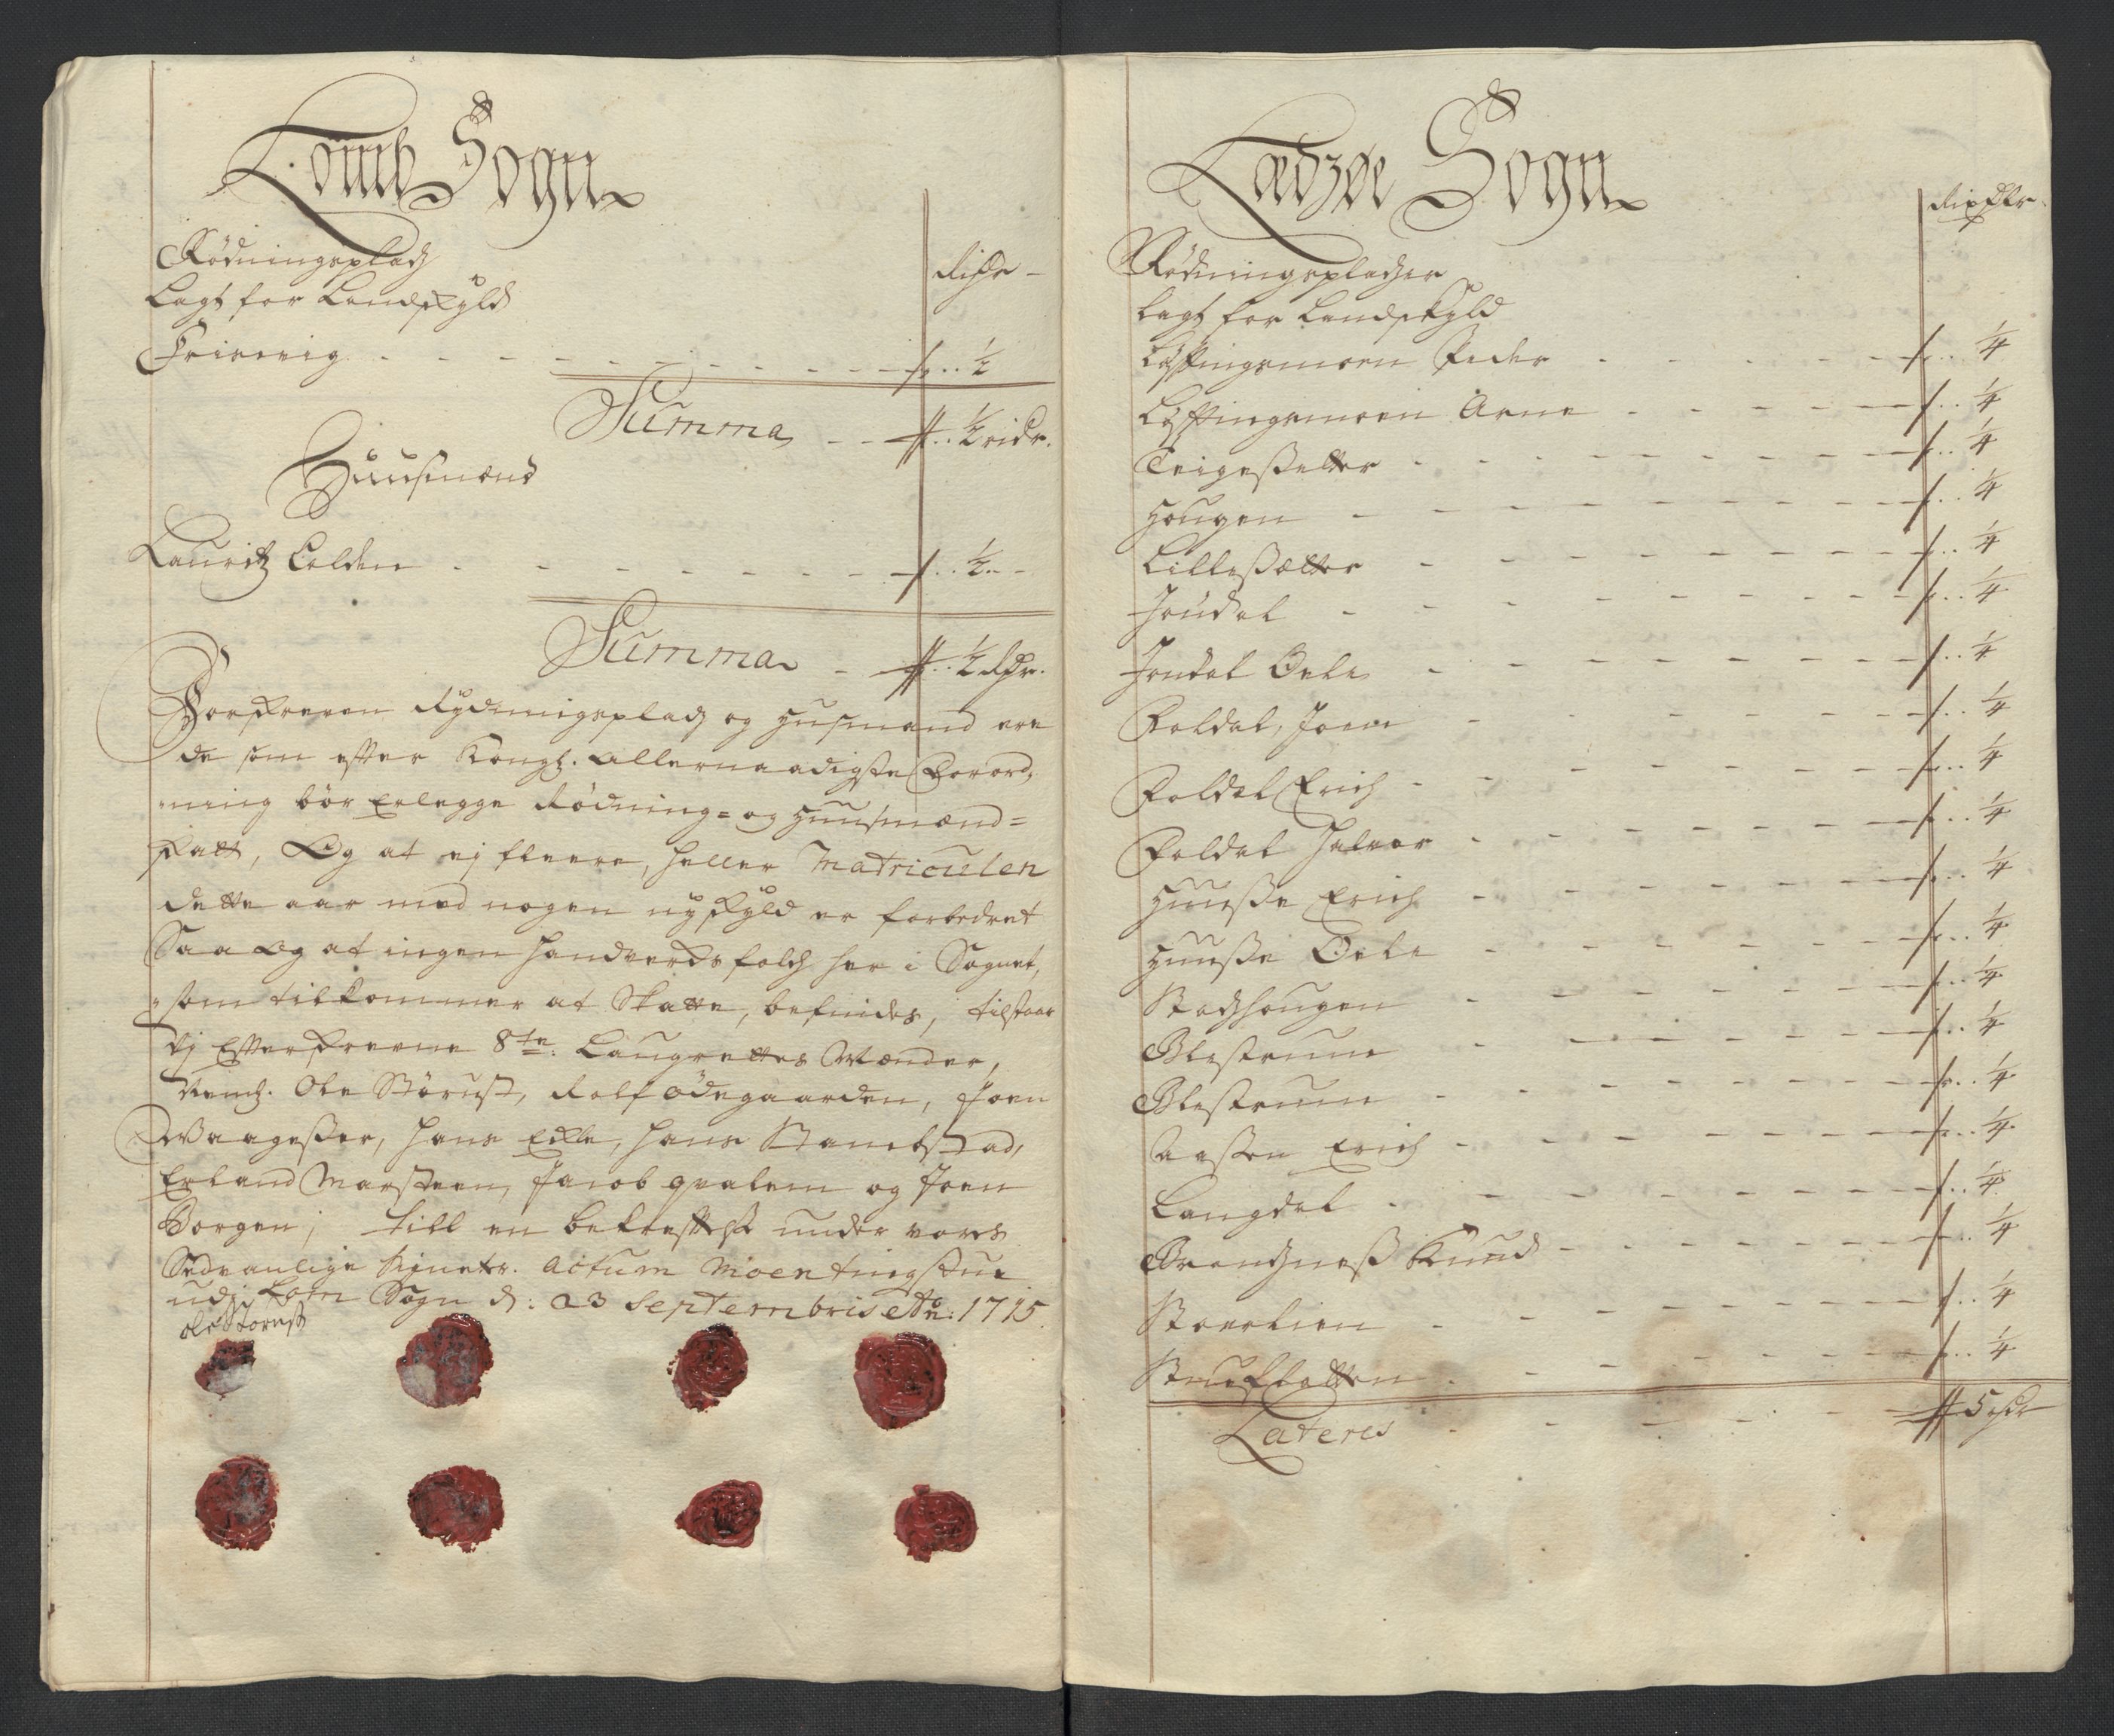 Lomb Sogn
Rødningsplads
Lagt for Landskyld
Friisvig - - - ½
Summa - - ½ ridr.
Huusmænd
Lauritz Colden - - - ½
Summa - ½ Rdr.
Forskreven Rydningsplads og Husmand ere
de som efter Kongl. Allernaadigste Forord-
ning bör Erlegge Rödning= og Huusmænd=
skatt, Og at ej fleere, heller Matriculen
dette aar med nogen nyskyld er forbedret
Saa og at ingen Handverksfolch her i Sognet,
som tilkommer at Skatte, befindes, tilstaar
Vj Efterskrevne 8te: Laugrettes Mænder,
Neml. Ole Störust, Rolf Ödegaarden, Joen
Waagesser, Hans Eckle, Hans Stamstad,
Erland Marsteen, Jacob qvalem og Joen
Borgen; till en bekreftelse under vores
Sedvanlige Signeter. Actum Moen tingstue
udj Lom Sogn d: 23 Septembris Ao: 1715.
Ole Storust
Lædzøe Sogn
Rödningspladser
lagt for Landskyld
Løftingsmoen Peder - - - ¼
Løftingsmoen Arne - - - ¼
Teigesætter - - - ¼
Hougen - - - ¼
Lillesætter - - - ¼
Jondal - - - ¼
Jondal Oele - - - ¼
Foldal, Joen - - - ¼
Foldal Erich - - - ¼
Foldal Halvor - - - ¼
Huusße Erich - - - ¼
Huusße Oele - - - ¼
Stadshougen - - - ¼
Blestrum - - - ¼
Blestrum - - - ¼
Aasten Erich - - - ¼
Langdal - - - ¼
Brendneß Knud - - - ¼
Storlien - - - ¼
Stueflotten - - - ¼
Lateres - - - 5